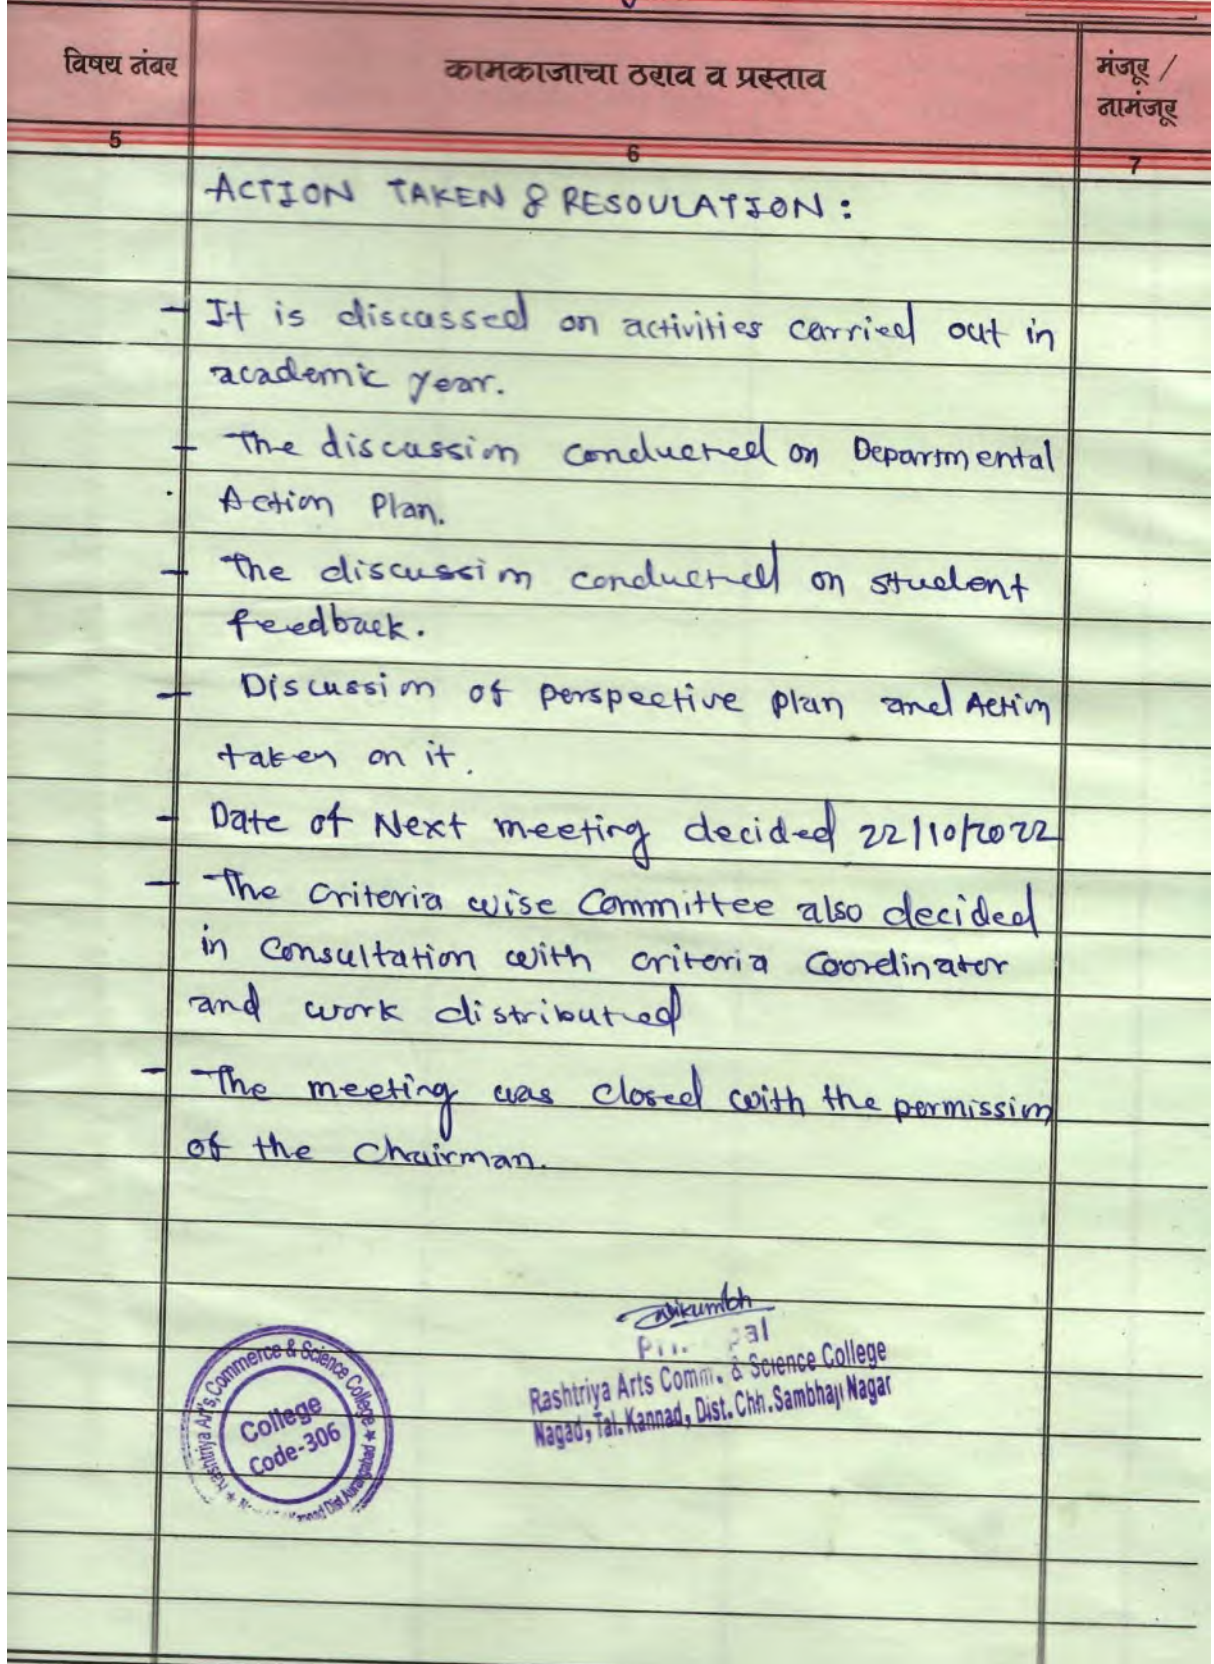 विषय नंबर
कामकाजाचा ठराव व प्रस्ताव
मंजूर /
नामंजूर
5
6
7
ACTION TAKEN & RESOULATION :
- It is discussed on activities carried out in
academic year.
- The discussion conducted on Departmental
Action Plan.
- The discussion conducted on student
feedback.
- Discussion of perspective plan and Action
taken on it.
- Date of Next meeting decided 22/10/2022
- The criteria wise Committee also decided
in Consultation with criteria Coordinator
and work distributed
- The meeting was closed with the permission
of the Chairman.
Rashtriya Arts Comm. & Science College
Nagad, Tal. Kannad, Dist. Chh. Sambhaji Nagar
Rashtriya Art's, Commerce & Science College
Dist. Aurangabad
College
Code-306